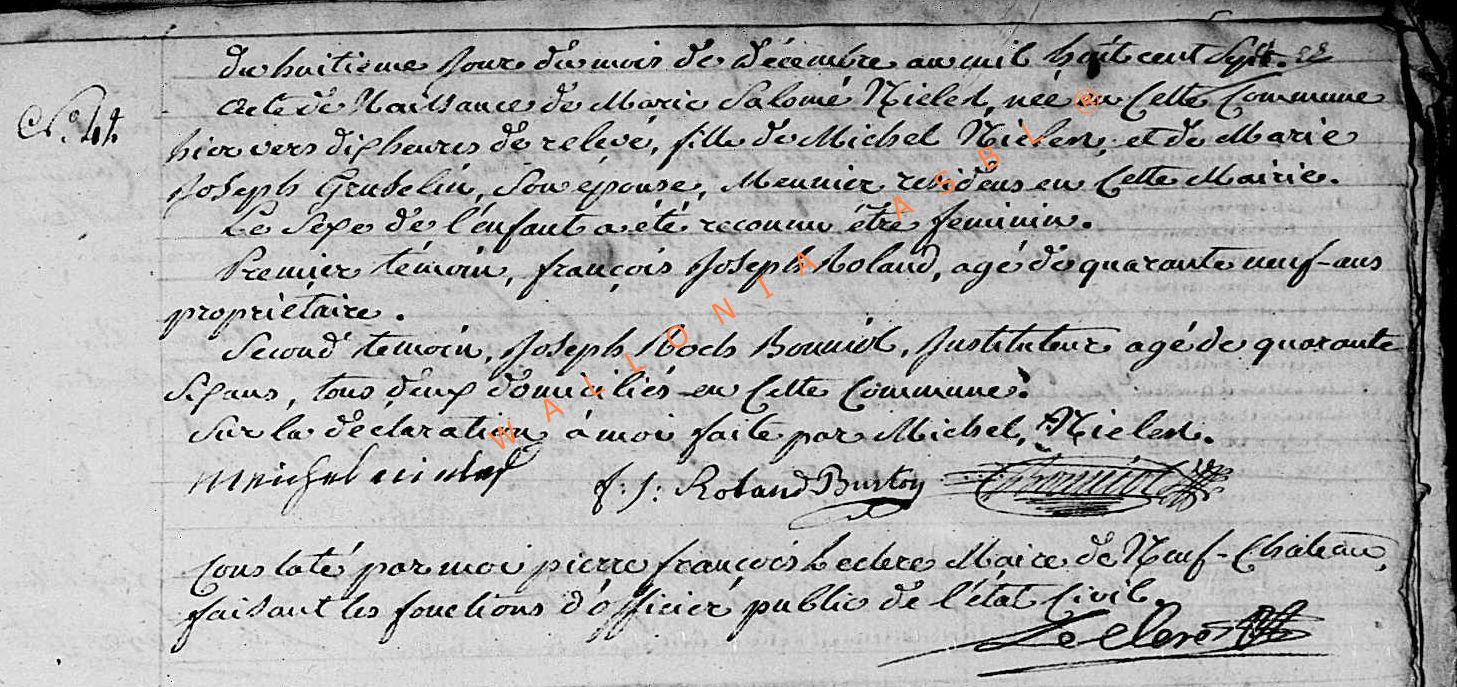 Du huitieme Jour du mois de Décembre an mil huit cent Sept. 
N.° 44.
Acte de Naissance de Marie Salomé Nicles, née en Cette Commune
hier vers dix heures de relevé, fille de Michel Niclen, et de Marie
Joseph Gruselin, Son epouse, Meunier residens en Cette Mairie.
Le Sexe de l'enfant a été reconnu être feminin.
Premier témoin, françois Joseph Roland, agé de quarante neuf ans
propriétaire.
Second temoin, Joseph Roch Bonniol, Instituteur agé de quarante
Six ans, tous deux domiciliés en Cette Commune.
Sur la déclaration à moi faite par Michel, Niclen.
Meichel f: J: Roland Burton
Constaté par moi pierre françois Leclerc Maire de Neuf-Château,
faisant les fonctions d'officier public de l'état Civil.
Leclerc
WALLONIA ASBL ©